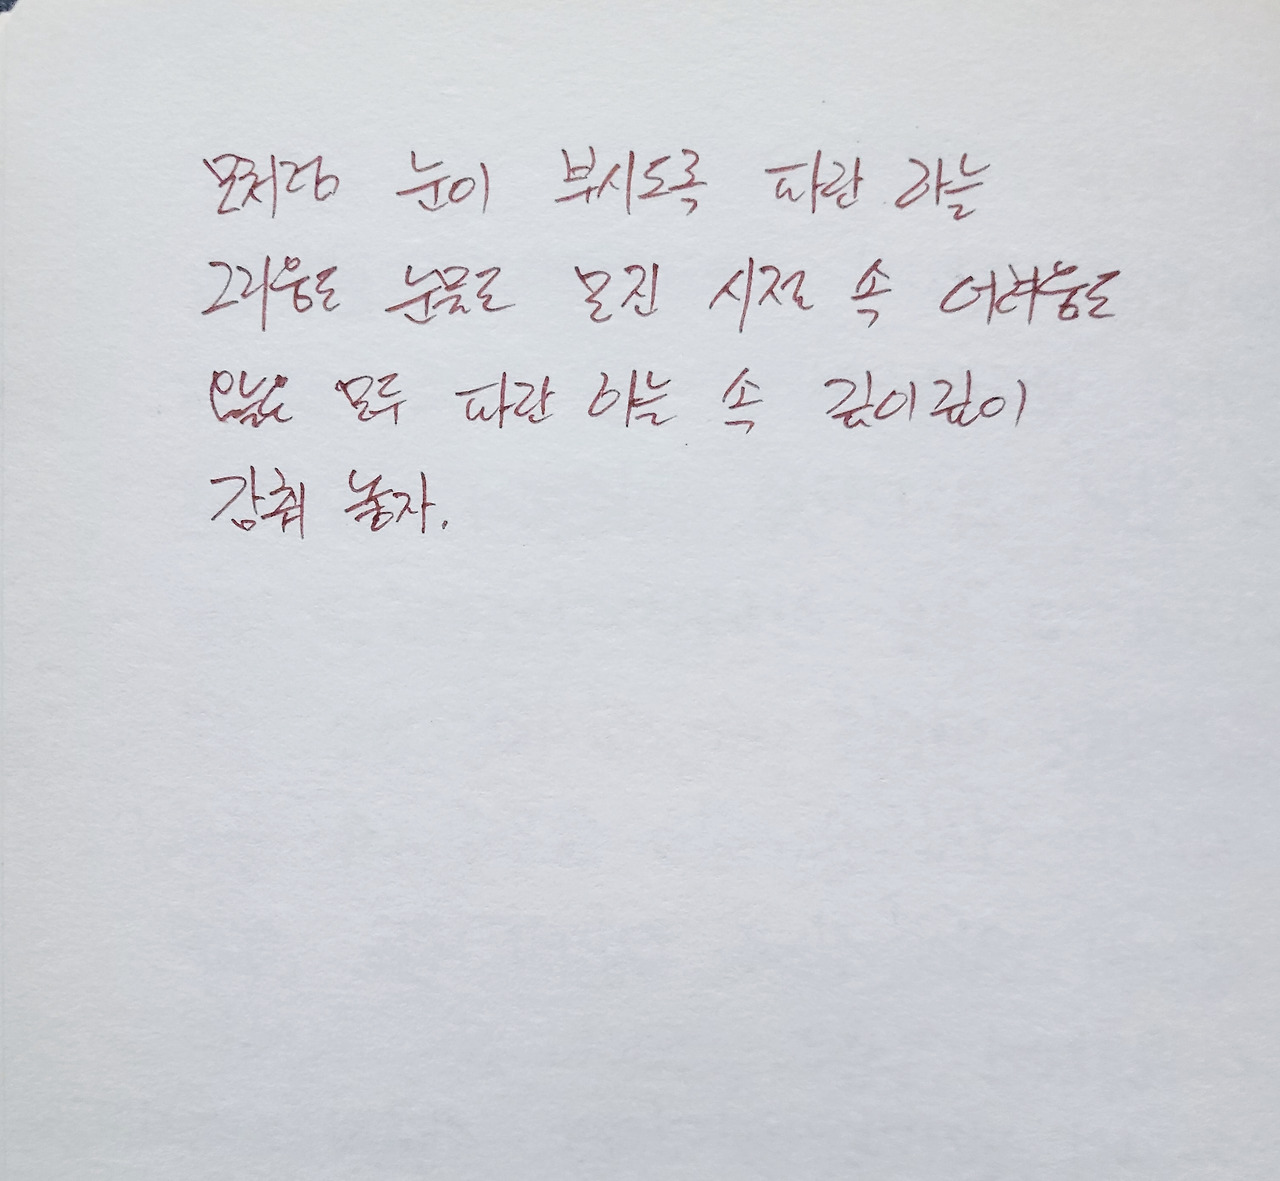 모처럼 눈이 부시도록 파란 하늘
그리움도 눈물도 모진 시절 속 어려움도
오늘은 모두 파란 하늘 속 깊이깊이
감춰 놓자.